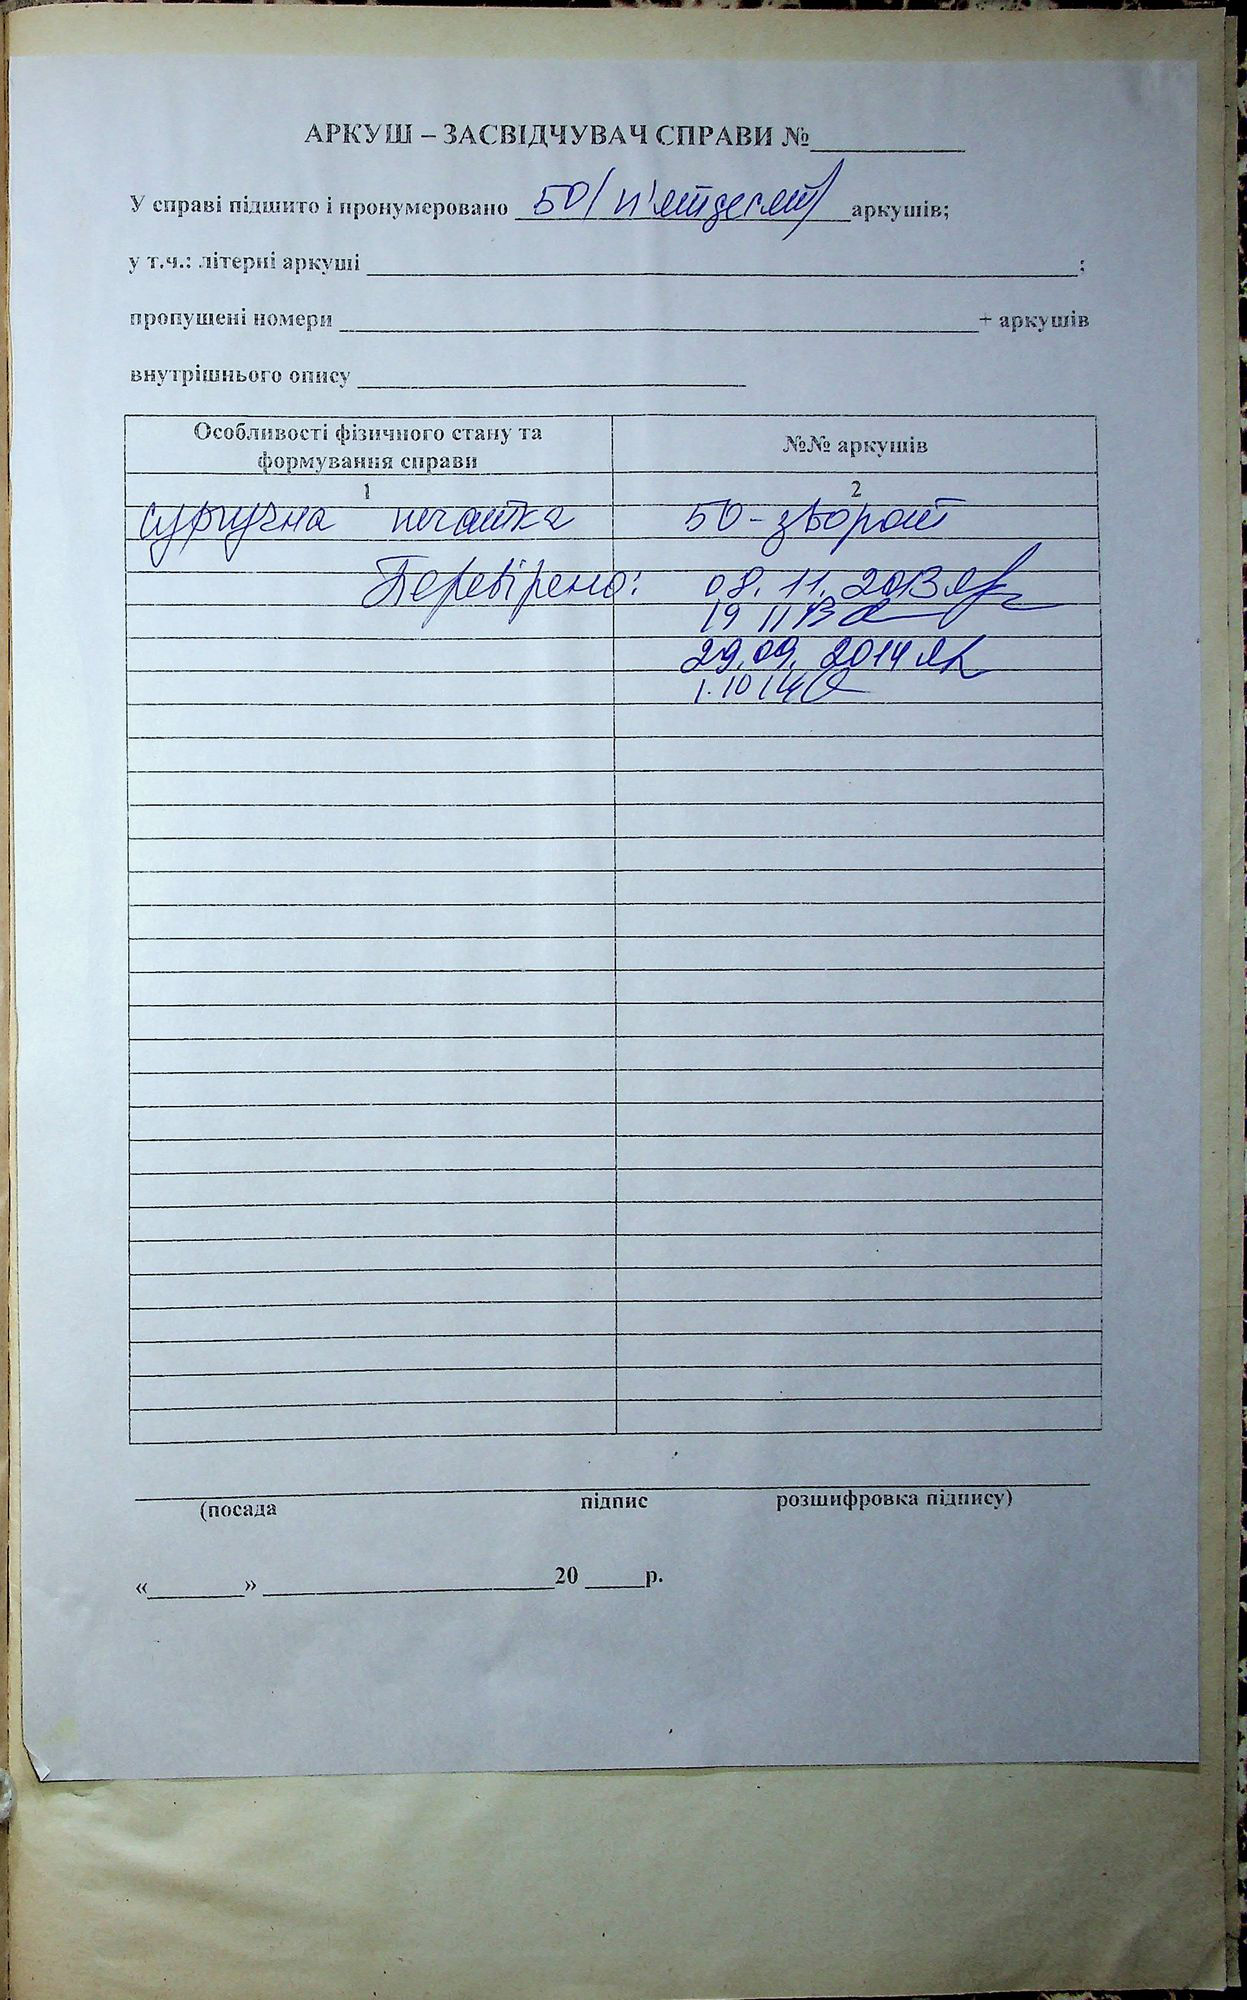 АРКУШ – ЗАСВІДЧУВАЧ СПРАВИ №__________
У справі підшито і пронумеровано 50 (п'ятдесят) аркушів;
у т.ч.: літерні аркуші ____________________;
пропущені номери ____________________+ аркушів
внутрішнього опису ____________________
Особливості фізичного стану та
формування справи
№№ аркушів
1 2
сургучна печатка 50 - зворот
Перевірено: 08.11.2013
19 11 13
29.09.2014
1.10 14
(посада підпис розшифровка підпису)
«_______» ____________________20 ____р.